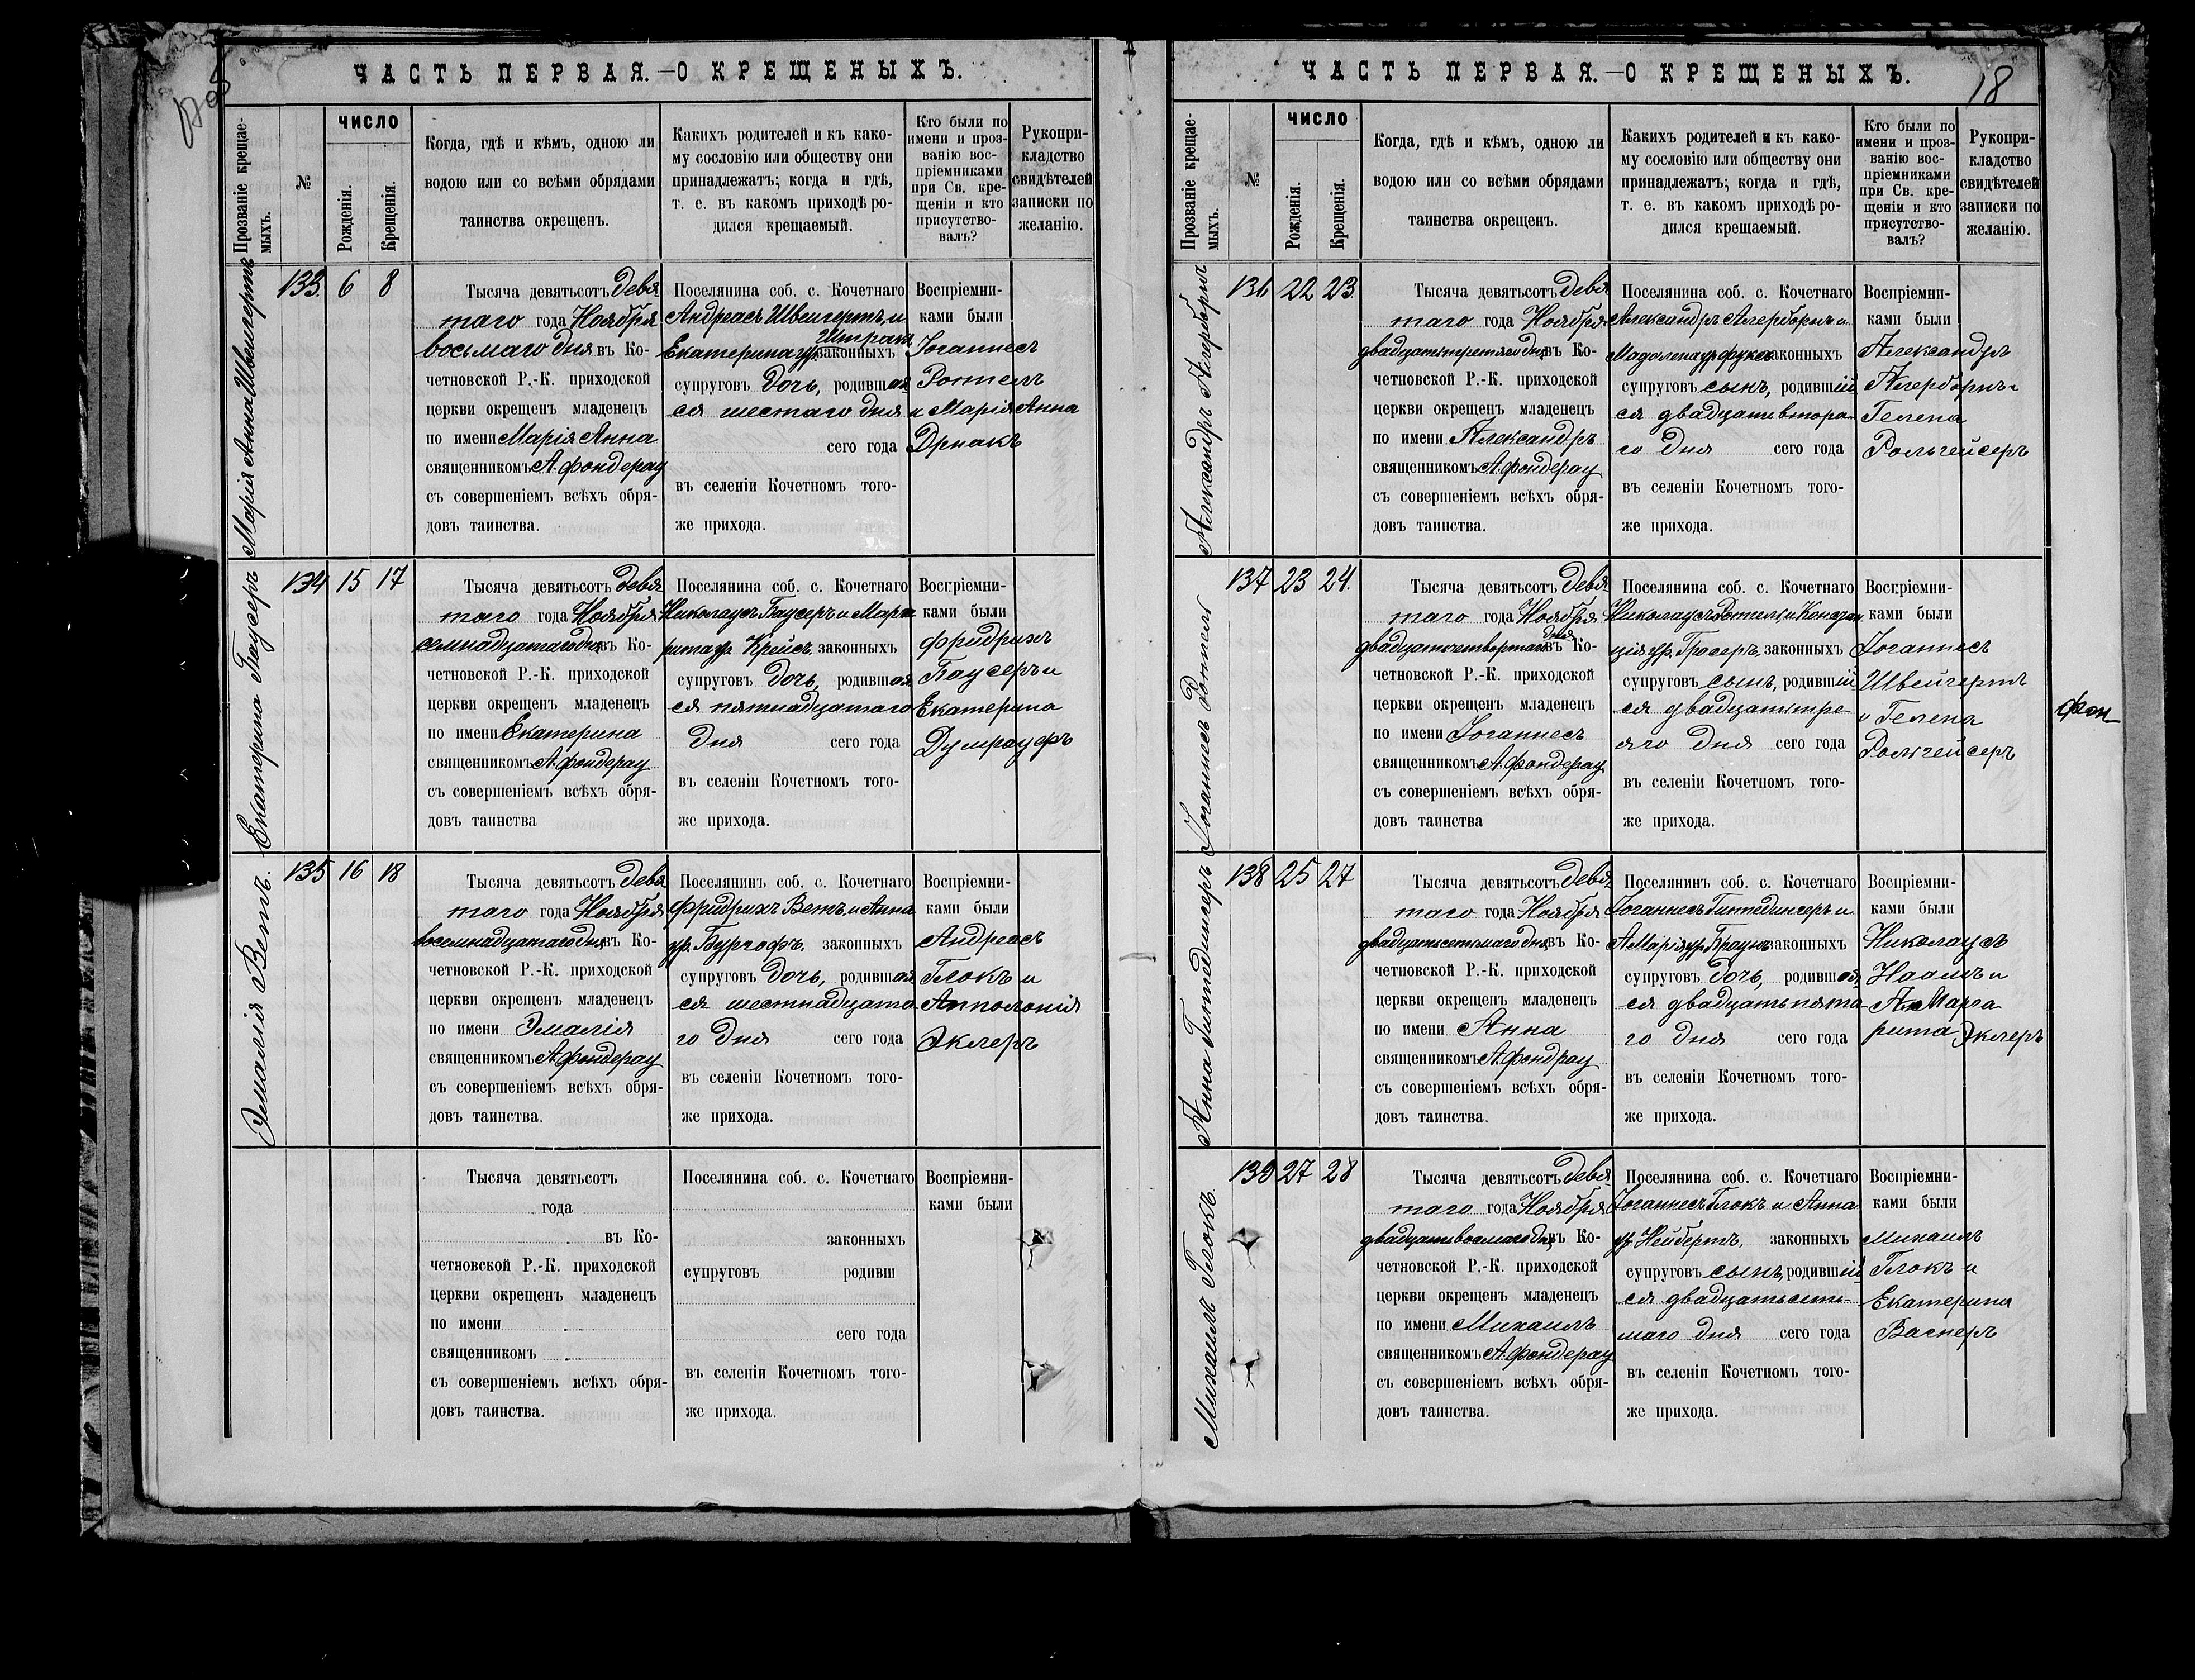 ЧАСТЬ ПЕРВАЯ.—О КРЕЩЕНЫХЪ.
Прозваніе крещае-
мыхъ.
№
ЧИСЛО
Рожденія.
Крещенія.
Когда, гдѣ и кѣмъ, одною ли
водою или со всѣми обрядами
таинства окрещенъ.
Какихъ родителей и къ како-
му сословію или обществу они
принадлежатъ; когда и гдѣ,
т. е. въ какомъ приходѣ ро-
дился крещаемый.
Кто были по
имени и проз-
ванію вос-
пріемниками
при Св. кре-
щеніи и кто
присутство-
валъ?
Рукопри-
кладство
свидѣтелей
записки по
желанію.
Марія Анна Швейгертъ
133. 6 8
Тысяча девятьсотъ девя
таго года Ноября
восьмаго дня въ Ко-
четновской Р.-К. приходской
церкви окрещенъ младенецъ
по имени Марія Анна
священникомъ А. фондерау
съ совершеніемъ всѣхъ обря-
довъ таинства.
Поселянина соб. с. Кочетнаго
Андреасъ Швейгертъ, и
Екатерина ур. законныхъ
супруговъ дочь, родившая
ся шестаго дня
сего года
въ селеніи Кочетномъ того-
же прихода.
Воспріемни-
ками были
Іоганнесъ
Роттелъ
и Марія Анна
Дрнакъ
Екатерина Баусеръ
134 15 17
Тысяча девятьсотъ девя
таго года Ноября
семнадцатаго дня въ Ко-
четновской Р.-К. приходской
церкви окрещенъ младенецъ
по имени Екатерина
священникомъ А. фондерау
съ совершеніемъ всѣхъ обря-
довъ таинства
Поселянина соб. с. Кочетнаго
Николаусъ Баусеръ и Марга
рита ур. Крейсъ, законныхъ
супруговъ дочь, родившая
ся пятнадцатаго
дня сего года
въ селеніи Кочетномъ того-
же прихода.
Воспріемни-
ками были
фридрихъ
Баусеръ и
Екатерина
Думрауфъ
Эмалія Ветъ.
135 16 18
Тысяча девятьсотъ девя
таго года Ноября
восемнадцатаго дня въ Ко-
четновской Р.-К. приходской
церкви окрещенъ младенецъ
по имени Эмалія
священникомъ А. фондерау
съ совершеніемъ всѣхъ обря-
довъ таинства.
Поселянинъ соб. с. Кочетнаго
Фридрихъ Ветъ, и Анна
ур. Бургофъ. законныхъ
супруговъ дочь, родившая
ся шестнадцата
го дня сего года
въ селеніи Кочетномъ того-
же прихода.
Воспріемни-
ками были
Андреасъ
Глокъ и
Апполонія
Эклеръ
Тысяча девятьсотъ
года
въ Ко-
четновской Р.-К. приходской
церкви окрещенъ младенецъ
по имени
священникомъ
съ совершеніемъ всѣхъ обря-
довъ таинства.
Поселянина соб. с. Кочетнаго
законныхъ
супруговъ родивш
сего года
въ селеніи Кочетномъ того-
же прихода.
Воспріемни-
ками были
ЧАСТЬ ПЕРВАЯ.—О КРЕЩЕНЫХЪ.
18
Прозваніе крещае-
мыхъ.
№
ЧИСЛО
Рожденія.
Крещенія.
Когда, гдѣ и кѣмъ, одною ли
водою или со всѣми обрядами
таинства окрещенъ.
Какихъ родителей и къ како-
му сословію или обществу они
принадлежатъ; когда и гдѣ,
т. е. въ какомъ приходѣ ро-
дился крещаемый.
Кто были по
имени и проз-
ванію вос-
пріемниками
при Св. кре-
щеніи и кто
присутство-
валъ?
Рукопри-
кладство
свидѣтелей
записки по
желанію.
Александръ Алерборнъ
136 22 23.
Тысяча девятьсотъ девя
таго года Ноября
двадцатьтретяго дня въ Ко-
четновской Р.-К. приходской
церкви окрещенъ младенецъ
по имени Александръ
священникомъ А. фондерау
съ совершеніемъ всѣхъ обря-
довъ таинства.
Поселянина соб. с. Кочетнаго
Александръ Алерборнъ и
Мадолена ур. фуксъ законныхъ
супруговъ сынъ, родившій
ся двадцать втора-
го дня сего года
въ селеніи Кочетномъ того-
же прихода.
Воспріемни-
ками были
Александръ
Алерборнъ и
Гелена
Рольгейсеръ
Іоганнесъ Роттелъ
137 23 24.
Тысяча девятьсотъ девя
таго года Ноября
двадцатьчетвертаго дня въ Ко-
четновской Р.-К. приходской
церкви окрещенъ младенецъ
по имени Іоганнесъ
священникомъ А. фондерау
съ совершеніемъ всѣхъ обря-
довъ таинства
Поселянина соб. с. Кочетнаго
Николаусъ Роттелъ, и Констан
ція ур. Гросеръ, законныхъ
супруговъ сынъ, родившій
ся двадцатьтре-
яго дня сего года
въ селеніи Кочетномъ того-
же прихода.
Воспріемни-
ками были
Іоганнесъ
Швейгертъ
и Гелена
Рольгейсеръ
фон
Анна Гиттедингеръ
138 25 27
Тысяча девятьсотъ девя
таго года Ноября
двадцатьседьмаго дня въ Ко-
четновской Р.-К. приходской
церкви окрещенъ младенецъ
по имени Анна
священникомъ А. фондрау
съ совершеніемъ всѣхъ обря-
довъ таинства.
Поселянинъ соб. с. Кочетнаго
Іоганнесъ Гиттедингеръ и
АМарія ур. Браунъ законныхъ
супруговъ дочь, родившая
ся двадцатьпята
го дня сего года
въ селеніи Кочетномъ того-
же прихода.
Воспріемни-
ками были
Николаусъ
и
Марга
рита Эклеръ
Михаилъ Глокъ.
139 27 28
Тысяча девятьсотъ девя
таго года Ноября
двадцатьвосмаго дня въ Ко-
четновской Р.-К. приходской
церкви окрещенъ младенецъ
по имени Михаилъ
священникомъ А. фондерау
съ совершеніемъ всѣхъ обря-
довъ таинства.
Поселянина соб. с. Кочетнаго
Іоганнесъ Глокъ и Анна
ур. Нейбертъ, законныхъ
супруговъ сынъ, родившій
ся двадцатьседь-
маго дня сего года
въ селеніи Кочетномъ того-
же прихода.
Воспріемни-
ками были
Михаилъ
Глокъ и
Екатерина
Васнеръ